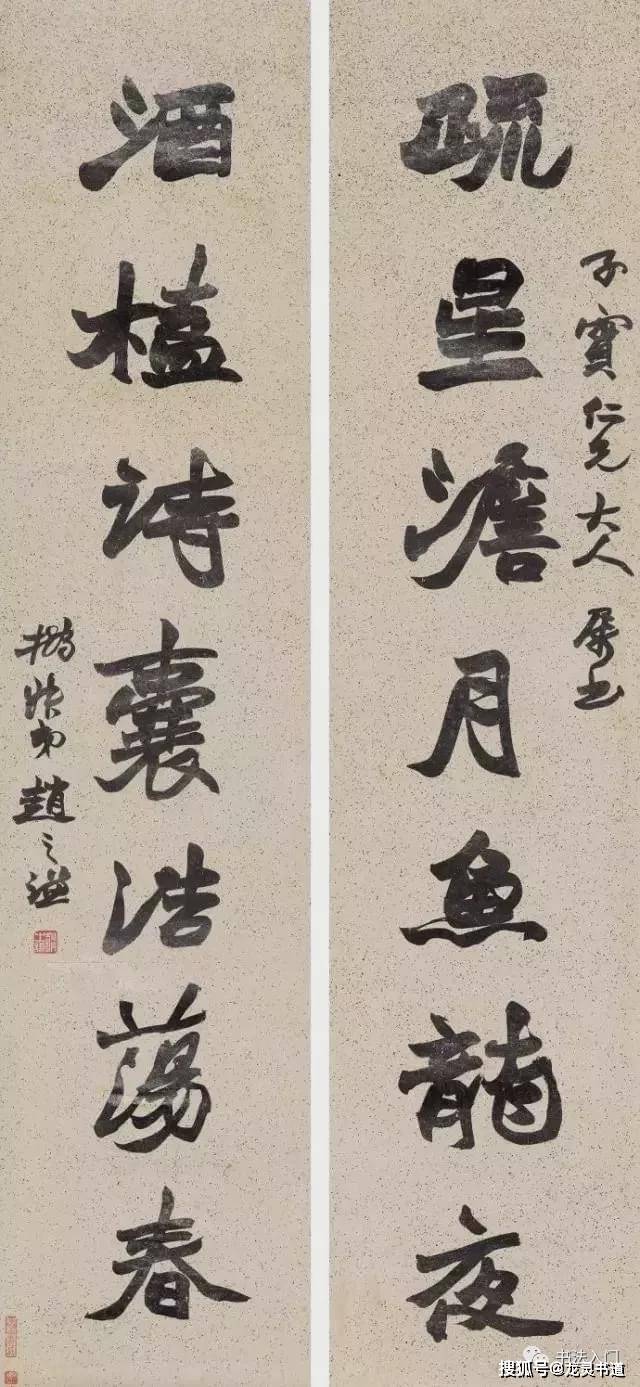 子寶仁兄大人屬書
疏星澹月魚龍夜
酒榼詩囊浩蕩春
撝叔弟趙之謙
书法入门
搜狐号@龙灵书道